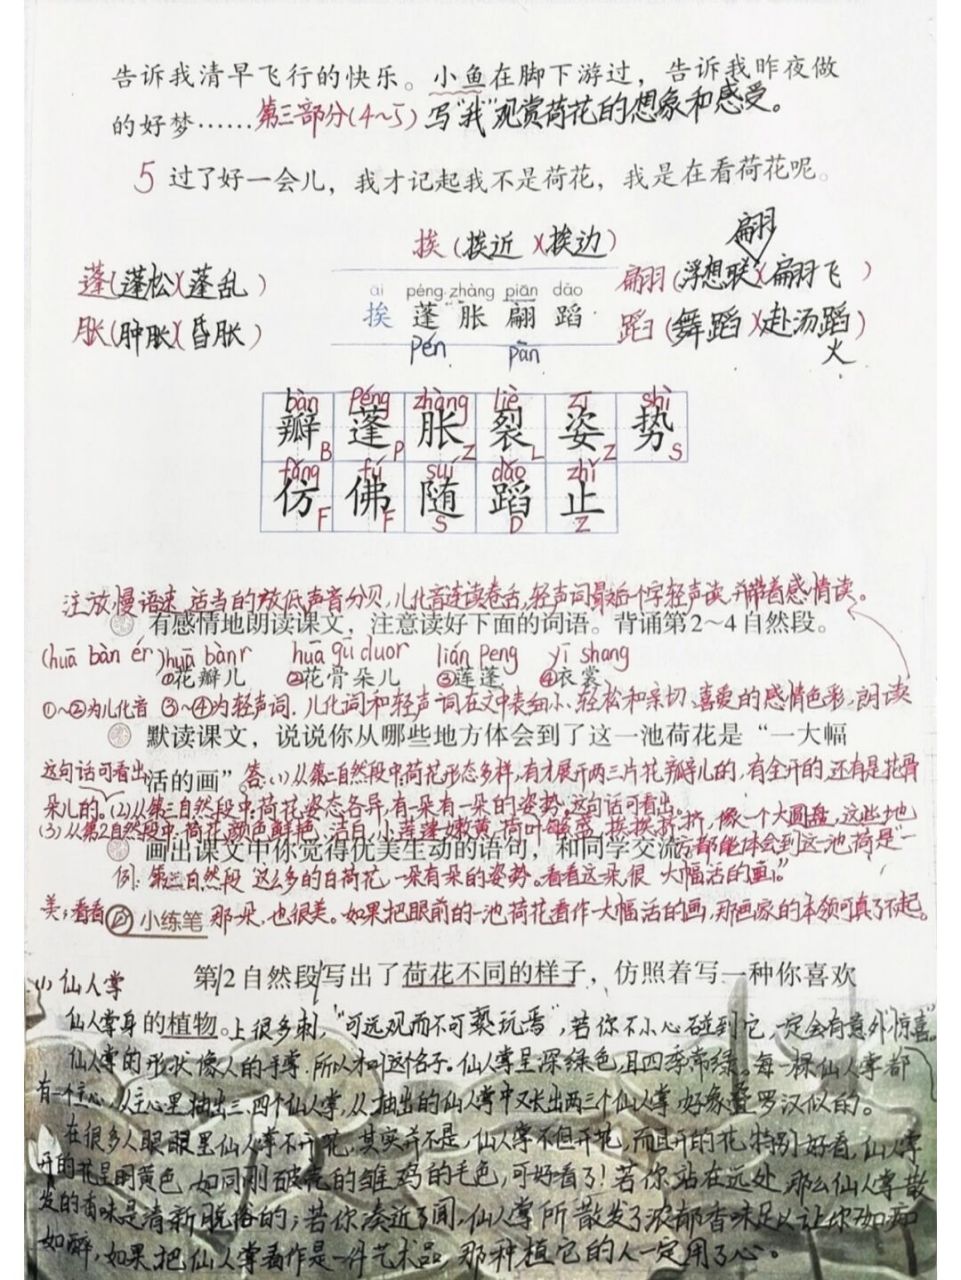 告诉我清早飞行的快乐。小鱼在脚下游过，告诉我昨夜做
的好梦……第三部分(4~5)写"我"观赏荷花的想象和感受。
5 过了好一会儿，我才记起我不是荷花，我是在看荷花呢。
挨(挨近)(挨边)
翩
蓬(蓬松)(蓬乱)
翩(浮想联)(翩飞)
āi péng zhàng piān dǎo
挨 蓬 胀 翩 蹈
胀(肿胀)(昏胀)
蹈(舞蹈)(赴汤蹈)
火
pén pān
bàn péng zhàng liè zī shì
瓣B 蓬P 胀Z 裂L 姿Z 势S
fǎng fú suí dǎo zhǐ
仿F 佛F 随S 蹈D 止Z
注:放慢语速,适当的放低声音分贝,儿化音连读卷舌,轻声词最后个字轻声读,并带着感情读。
有感情地朗读课文，注意读好下面的词语。背诵第2～4自然段。
(huā bàn ér)huā bànr huā gū duor lián peng yī shang
①花瓣儿 ②花骨朵儿 ③莲蓬 ④衣裳
①~②为儿化音 ③~④为轻声词.儿化词和轻声词在文中表细小、轻松和亲切、喜爱的感情色彩,朗读
默读课文，说说你从哪些地方体会到了这一池荷花是“一大幅
活的画”。答:(1)从第二自然段中:荷花形态多样,有才展开两三片花瓣儿的,有全开的,还有是花骨
这句话可看出
朵儿的。(2)从第三自然段中:荷花姿态各异,有一朵有一朵的姿势。这句话可看出。
(3)从第2自然段中:荷花颜色鲜艳、洁白,小莲蓬嫩黄,荷叶挨挨挤挤,像一个大圆盘,这些地
画出课文中你觉得优美生动的语句，和同学交流。方都能体会到这一池荷是“一
例:第三自然段 这么多的白荷花,一朵有朵的姿势。看看这一朵,很 大幅活的画。”
美;看看 小练笔 那一朵,也很美。如果把眼前的一池荷花看作一大幅活的画,那画家的本领可真了不起。
(1)仙人掌
第2自然段写出了荷花不同的样子，仿照着写一种你喜欢
的植物。
仙人掌身上很多刺,"可远观而不可亵玩焉",若你不小心碰到它,一定会有意外"惊喜"。
仙人掌的形状像人的手掌,所以才叫这个名子。仙人掌呈深绿色,且四季常绿。每一棵仙人掌都
有一个主心,从主心里抽出三、四个仙人掌,从抽出的仙人掌中又长出两三个仙人掌,好象叠罗汉似的。
在很多人眼眼里仙人掌不开花,其实并不是,仙人掌不但开花,而且开的花,特别好看,仙人掌
开的花是明黄色,如同刚破壳的雏鸡的毛色,可好看了!若你站在远处,那么仙人掌散
发的香味是清新脱俗的;若你凑近了闻,仙人掌所散发了浓郁香味足以让你如痴
如醉,如果把仙人掌看作是一件艺术品,那种植它的人一定用了心。